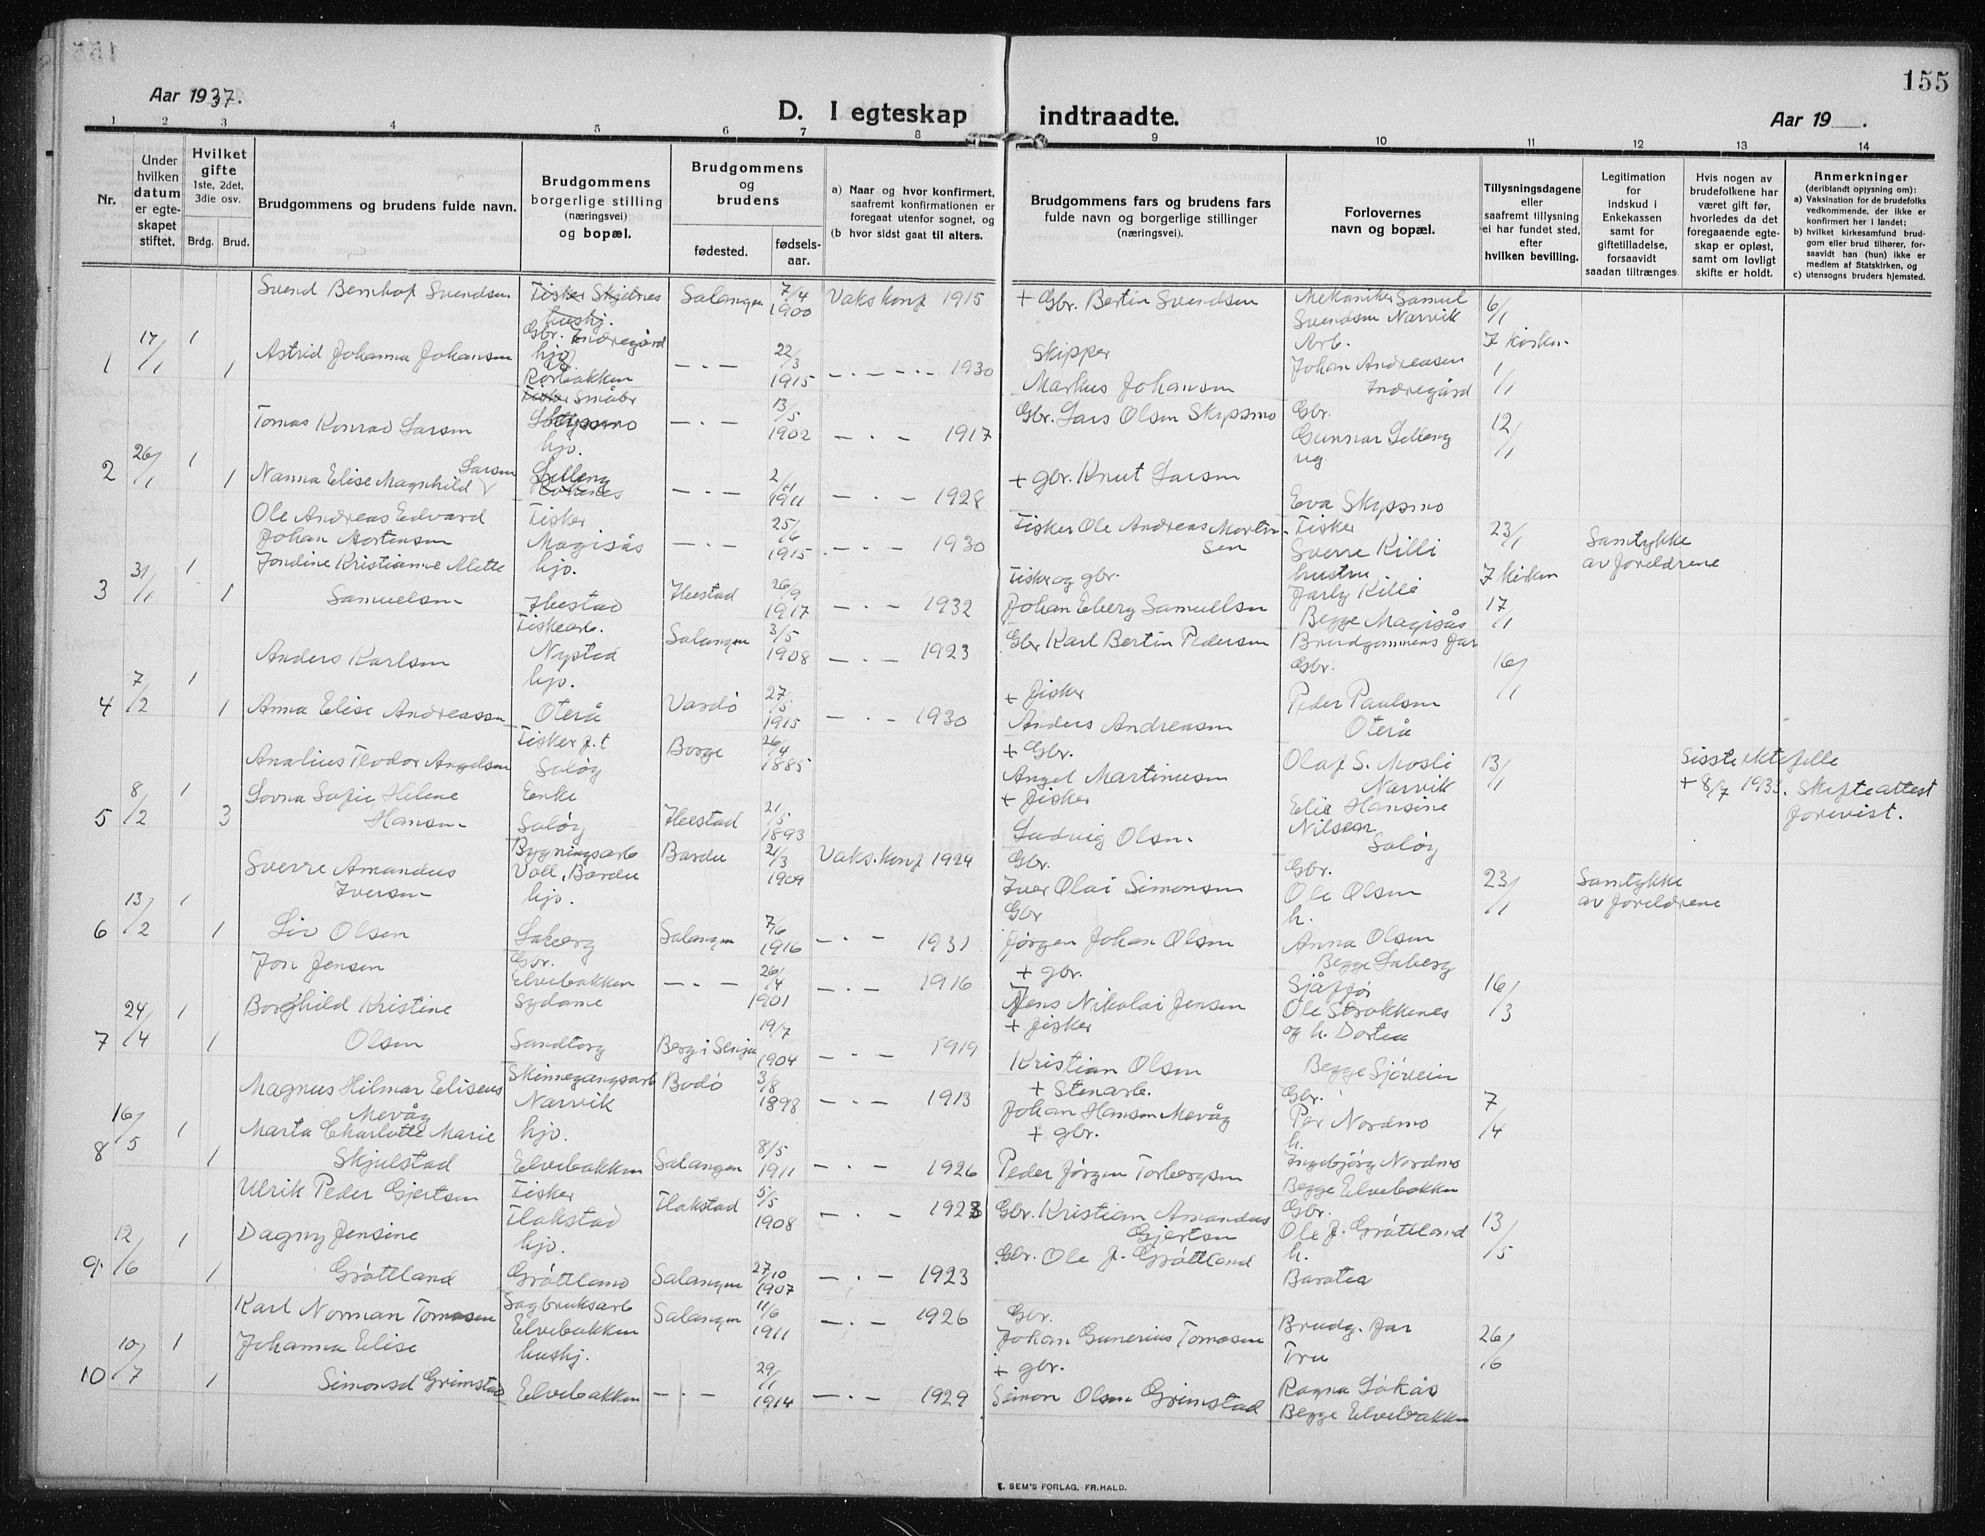 155
Aar 1937.
D. I egteskap indtraadte.
Aar 19 .
1 2 3 4 5 6 7 8 9 10 11 12 13 14
Nr.
Under hvilken datum er egteskapet stiftet.
Hvilket gifte 1ste, 2det, 3die osv.
Brdg. Brud.
Brudgommens og brudens fulde navn.
Brudgommens borgerlige stilling (næringsvei) og bopæl.
Brudgommens og brudens
fødested.
fødselsaar.
a) Naar og hvor konfirmert, saafremt konfirmationen er foregaat utenfor sognet, og
(b hvor sidst gaat til alters.
Brudgommens fars og brudens fars fulde navn og borgerlige stillinger (næringsvei).
Forlovernes navn og bopæl.
Tillysningsdagene eller saafremt tillysning ei har fundet sted, efter hvilken bevilling.
Legitimation for indskud i Enkekassen samt for giftetilladelse, forsaavidt saadan tiltrænges.
Hvis nogen av brudefolkene har været gift før, hvorledes da det foregaaende egteskap er opløst, samt om lovligt skifte er holdt.
Anmerkninger
(deriblandt opjysning om):
a) Vaksination for de brudefolks vedkommende, der ikke er konfirmert her i landet;
b) hvilket kirkesamfund brudgom eller brud tilhører, forsaavidt han (hun) ikke er medlem af Statskirken, og
c) utensogns bruders hjemsted.
1 17/1 1 Svend Bernhof Svendsen Fisker Skjelnes Salangen 7/4 1900 Vaks konf 1915 + Gbr. Bertin Svendsen Mekaniker Samuel Svendsen Narvik 6/1
hushj.
Gbr. Indregård
1 Astrid Johanna Johansen hjo. Rørbakken — . — 22/3 1915 — . — . — 1930 Skipper Markus Johansen Arb. Johan Andreasen Indregård I Kirken 1/1
2 26/1 1 Tomas Konrad Larsen Fisker Småbr Skyssmo — . — 13/5 1902 — . — 1917 Gbr. Lars Olsen Skyssmo Gbr. Gunnar Lilleng 12/1
hjo.
1 Nanna Elise Magnhild Larsen Lilleng — . — 2/11 1911 — . — 1928 + gbr. Knut Larsen ug. Eva Skyssmo
3 31/1 1 Ole Andreas Edvard Johan Mortensen Fisker Magisås — . — 25/6 1915 — . — 1930 Fisker Ole Andreas Mortensen Fisker Sverre Killi 23/1 Samtykke av foreldrene
1 Jondine Kristianne Alette Samuelsen hjo. Ibestad Ibestad 26/9 1917 — . — 1932 Fisker og gbr. Johan Eberg Samuelsen hustru Jarly Killi Begge Magisås I Kirken 17/1
4 7/2 1 Anders Karlsen Fiskearb. Nysted Salangen 3/5 1908 — . — 1923 Gbr Karl Bertin Pedersen Brudgommens far Gbr. 16/1
1 Anna Elise Andreassen hjo. Oterå Vardø 27/5 1915 — . — 1930 + fisker Anders Andreasen Peder Paulsen Oterå
5 8/2 1 Analius Teodor Angelsen Fisker f.t Saløy Borge 26/4 1885 + Gbr. Angel Martinusen Olaf S. Mosli Narvik 13/1 Sisste ektefelle + 8/7 1933. Skifteattest forevist.
3 Lovna Sofie Helene Hansen Enke Saløy Ibestad 21/5 1893 + fisker Ludvig Olsen. Elie Hansine Nilsen Saløy
6 13/2 1 Sverre Amandus Iversen Bygningsarb Voll, Bardu Bardu 21/3 1909 Vaks. konf 1924 Gbr. Iver Olai Simonsen Gbr. Ole Olsen 23/1 Samtykke av foreldrene
1 Liv Olsen hjo. Laberg Salangen 7/6 1916 — . — 1931 Gbr Jørgen Johan Olsen h. Anna Olsen Begge Laberg
7 24/4 1 Jon Jensen Gbr. Elvebakken — . — 26/4 1901 — . — 1916 + gbr. Jens Nikolai Jensen Sjåfør Ole Strokkenes 16/3
1 Borghild Kristine Olsen Sydame Sandtorg Berg i Senja 19/7 1904 — . — 1919 + fisker Kristian Olsen og h. Dortea Begge Sjøveien
8 16/5 1 Magnus Hilmar Eliseus Mevåg Skinnegangsarb Narvik Bodø 3/8 1898 — . — 1913 + Stenarb. Johan Hansen Mevåg Gbr. Per Nordmo 7/4
1 Marta Charlotte Marie Skjulstad hjo. Elvebakken Salangen 8/5 1911 — . — 1926 + gbr. Peder Jørgen Torbergsen h. Ingebjørg Nordmo Begge Elvebakken
9 12/6 1 Ulrik Peder Gjertsen Fisker Flakstad Flakstad 5/5 1908 — . — 1923 Gbr. Kristian Amandus Gjertsen Gbr. Ole J. Grøttland 13/5
1 Dagny Jensine Grøttland hjo. Grøttland Salangen 27/10 1907 — . — 1923 Gbr. Ole J. Grøttland h. Baratea
10 10/7 1 Karl Norman Tomasen Sagbruksarb Elvebakken Salangen 11/6 1911 — . — 1926 Gbr. Johan Gunerius Tomasen Brudg. far 26/6
1 Johanna Elise Simonsd Grimstad hushj. Elvebakken — . — 29/1 1914 — . — 1929 + gbr. Simon Olsen Grimstad Fru Ragna Løkås Begge Elvebakken
E. SEM'S FORLAG, FR.HALD.